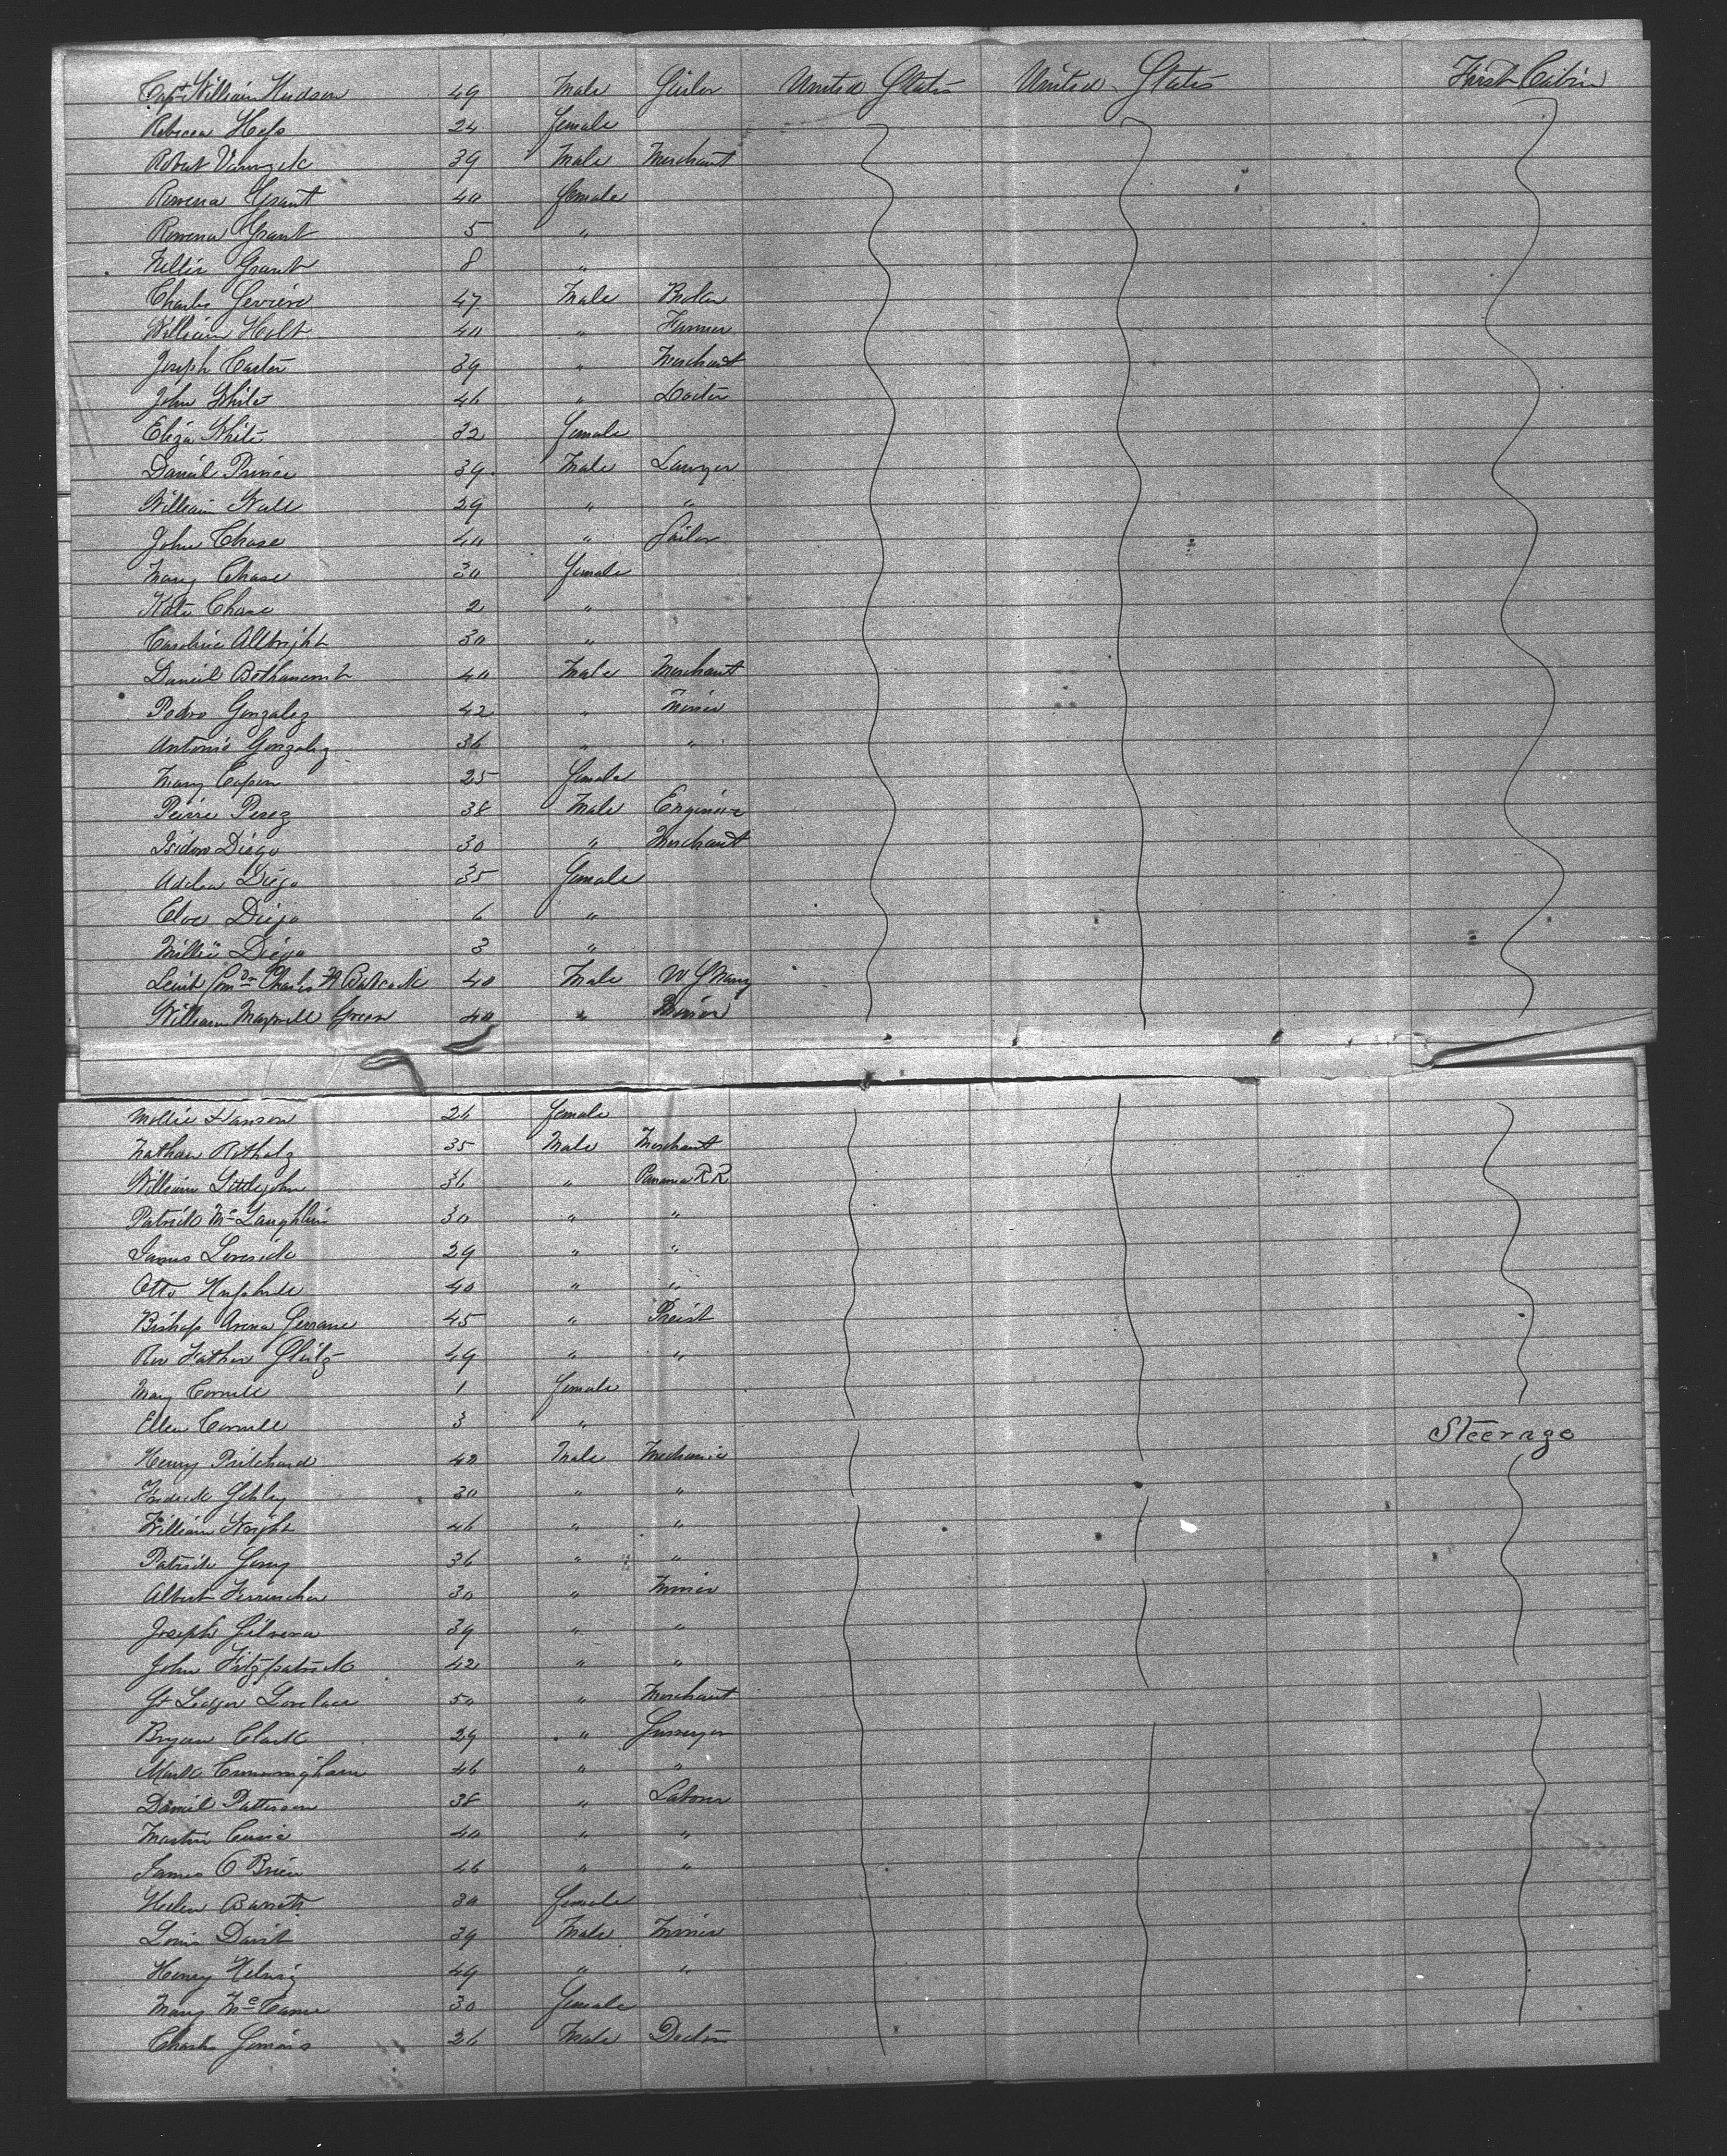 Capt William Hudson 49 Male Sailor United States United States First Cabin
Rebecca Hess 24 female
Robert 39 Male Merchant
Rowena Grant 40 female
Rowena Grant 5 "
Nellie Grant 8 "
Charles 47 Male Broker
William Holt 40 " Farmer
Joseph Carter 39 " Merchant
John White 46 " Doctor
Eliza White 32 female
Daniel Prince 39 Male Lawyer
William Wall 29 " "
John Chase 40 " Sailor
Mary Chase 30 female
Kate Chase 2 "
Caroline Allbright 30 "
Daniel Bethancourt 40 Male Merchant
Pedro Gonzalez 42 " Miner
Antonio Gonzalez 36 " "
Mary Capen 25 female
Peirre Perez 38 Male Engineer
Isidore Diego 30 " Merchant
Adelia Diego 35 female
Diego 6 "
Millie Diego 3 "
Leiut Comdr Charles H Babcock 40 Male U S Navy
William Maxwell Green 40 " Miner
Mollie Hanson 26 female
Nathan 35 Male Merchant
William Littlejohn 36 " Panama RR
Patrick McLaughlin 30 " "
James 29 " "
Otto 40 " "
Bishop 45 " Preist
Rev Father 49 " "
Mary Cornell 1 female
Ellen Cornell 3 "
Steerage
Henry Pritchard 42 Male Mechanic
Fredrick 30 " "
William Wright 46 " "
Patrick 36 " "
Albert 30 " Miner
Joseph Silvera 39 " "
John Fitzpatrick 42 " "
St Ledger Lovelace 50 " Merchant
Bryan Clark 29 " Surveyor
Mark Cunningham 46 " "
Daniel Patterson 38 " Laborer
Martin 40 " "
James O Brien 46 " "
Helen Barrett 30 female
Louis 39 Male Miner
Henry Helwig 49 " "
Mary McCann 30 female
Charles 26 Male Doctor